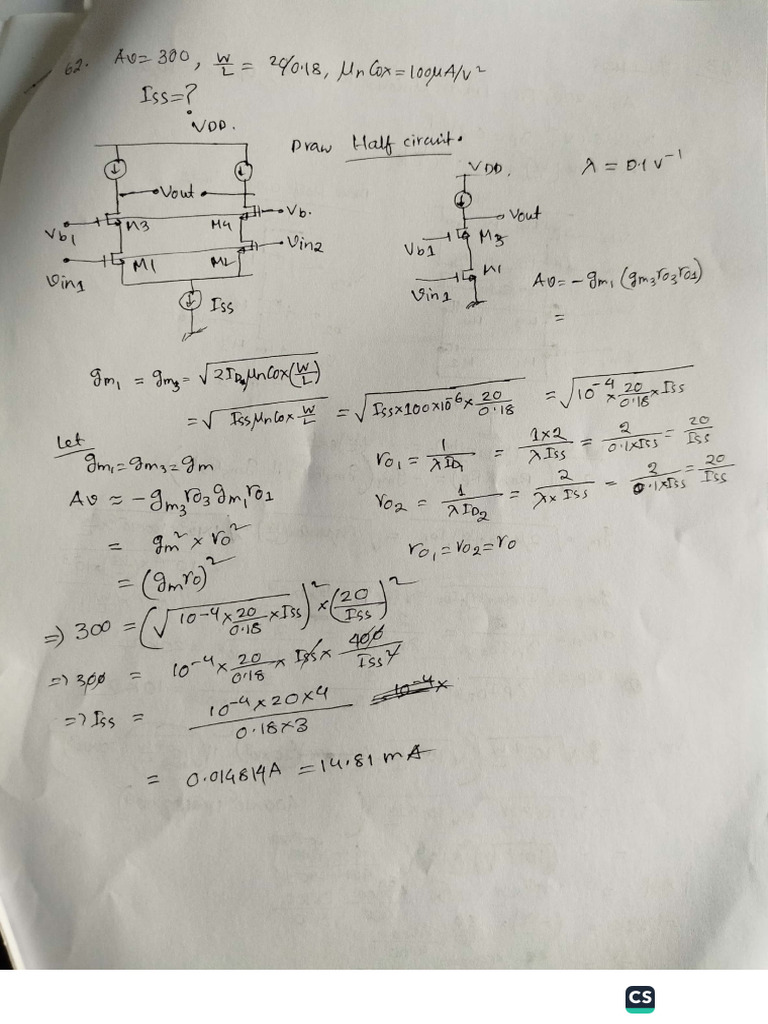 62. Av = 300, W/L = 20/0.18, μnCox = 100μA/V²
Iss = ?
VDD.
Draw Half circuit.
VDD.
λ = 0.1 V⁻¹
Vout
Vout
Vb1
M3
M4
Vb.
Vb1
M3
Vin1
M1
M2
Vin2
Vin1
M1
Av = -gm1 (gm3 ro3 ro1)
=
Iss
gm1 = gm3 = √(2ID μnCox (W/L))
= √(Iss μnCox W/L) = √(Iss × 100 × 10⁻⁶ × 20/0.18) = √(10⁻⁴ × 20/0.18 × Iss)
Let
gm1 = gm3 = gm
ro1 = 1/λID1 = 1×2/λIss = 2/0.1×Iss = 20/Iss
Av ≈ -gm3 ro3 gm1 ro1
ro2 = 1/λID2 = 2/λ×Iss = 2/0.1×Iss = 20/Iss
= gm² × ro²
ro1 = ro2 = ro
= (gm ro)²
⇒ 300 = (√(10⁻⁴ × 20/0.18 × Iss))² × (20/Iss)²
⇒ 300 = 10⁻⁴ × 20/0.18 × Iss × 400/Iss²
⇒ Iss = 10⁻⁴ × 20 × 4 / 0.18 × 3
= 0.014814A = 14.81 mA
CS